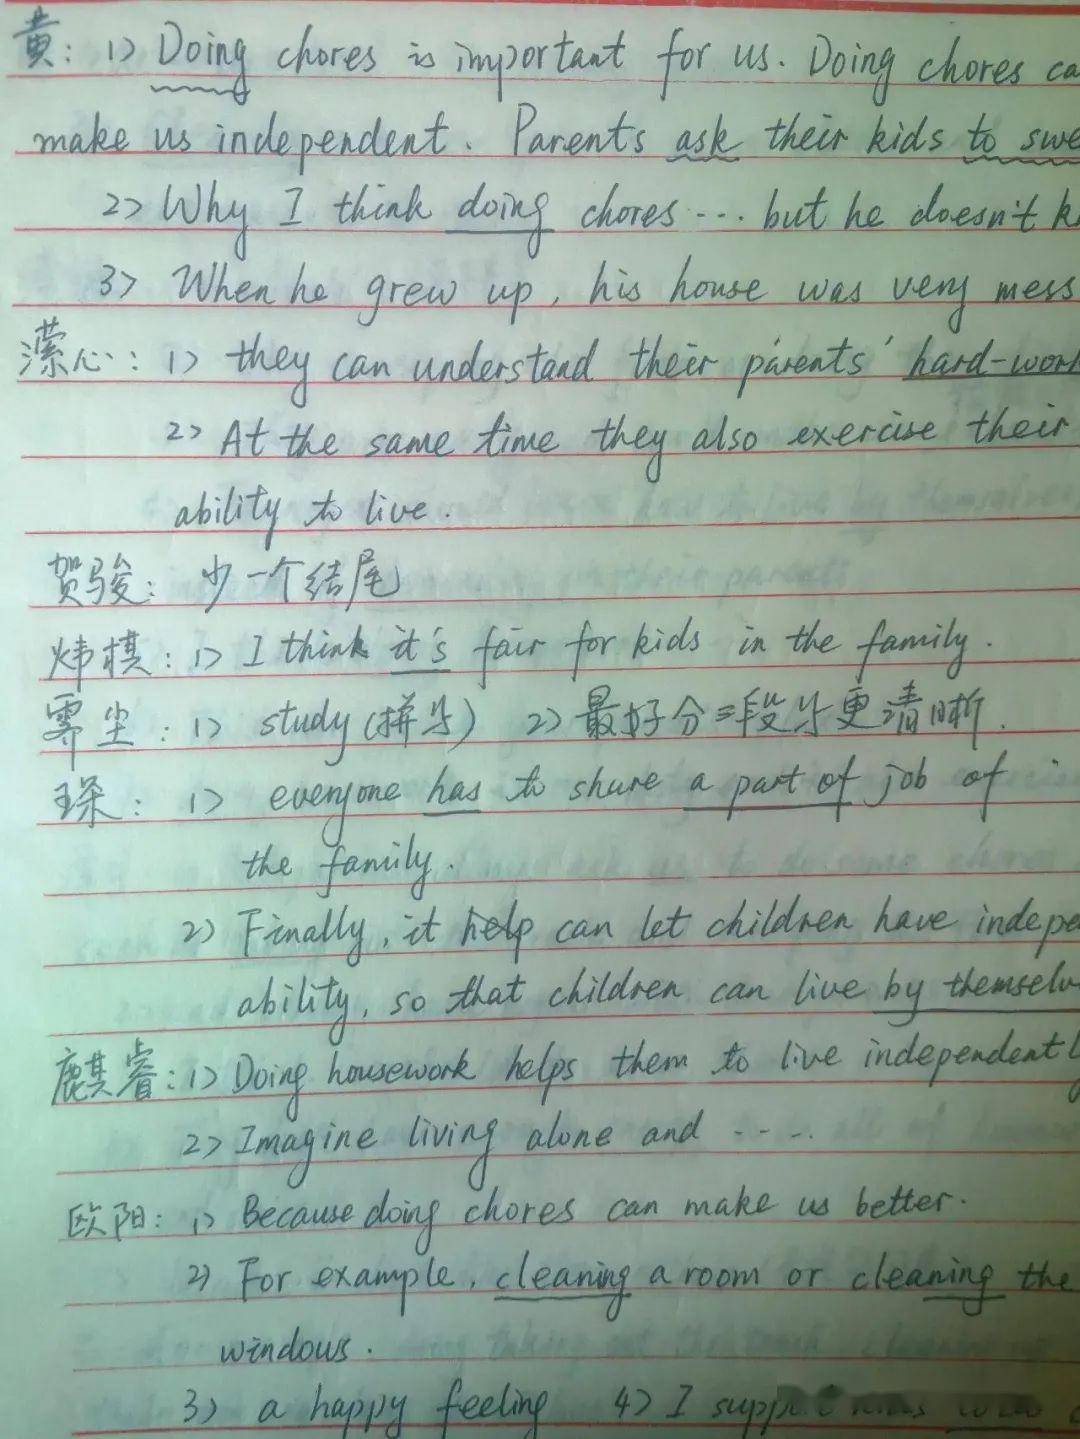 黄: 1) Doing chores is important for us. Doing chores ca
make us independent. Parents ask their kids to swe
2) Why I think doing chores ... but he doesn't k
3) When he grew up, his house was very mess
潆心: 1) they can understand their parents' hard-work
2) At the same time they also exercise their
ability to live.
贺骏: 少一个结尾
炜棋: 1) I think it's fair for kids in the family.
霁尘: 1) study (拼写) 2) 最好分三段写更清晰.
琛: 1) everyone has to share a part of job of
the family.
2) Finally, it help can let children have indepe
ability, so that children can live by themselv
麒睿: 1) Doing housework helps them to live independentl
2) Imagine living alone and ....
欧阳: 1) Because doing chores can make us better.
2) For example, cleaning a room or cleaning the
windows.
3) a happy feeling 4) I supp